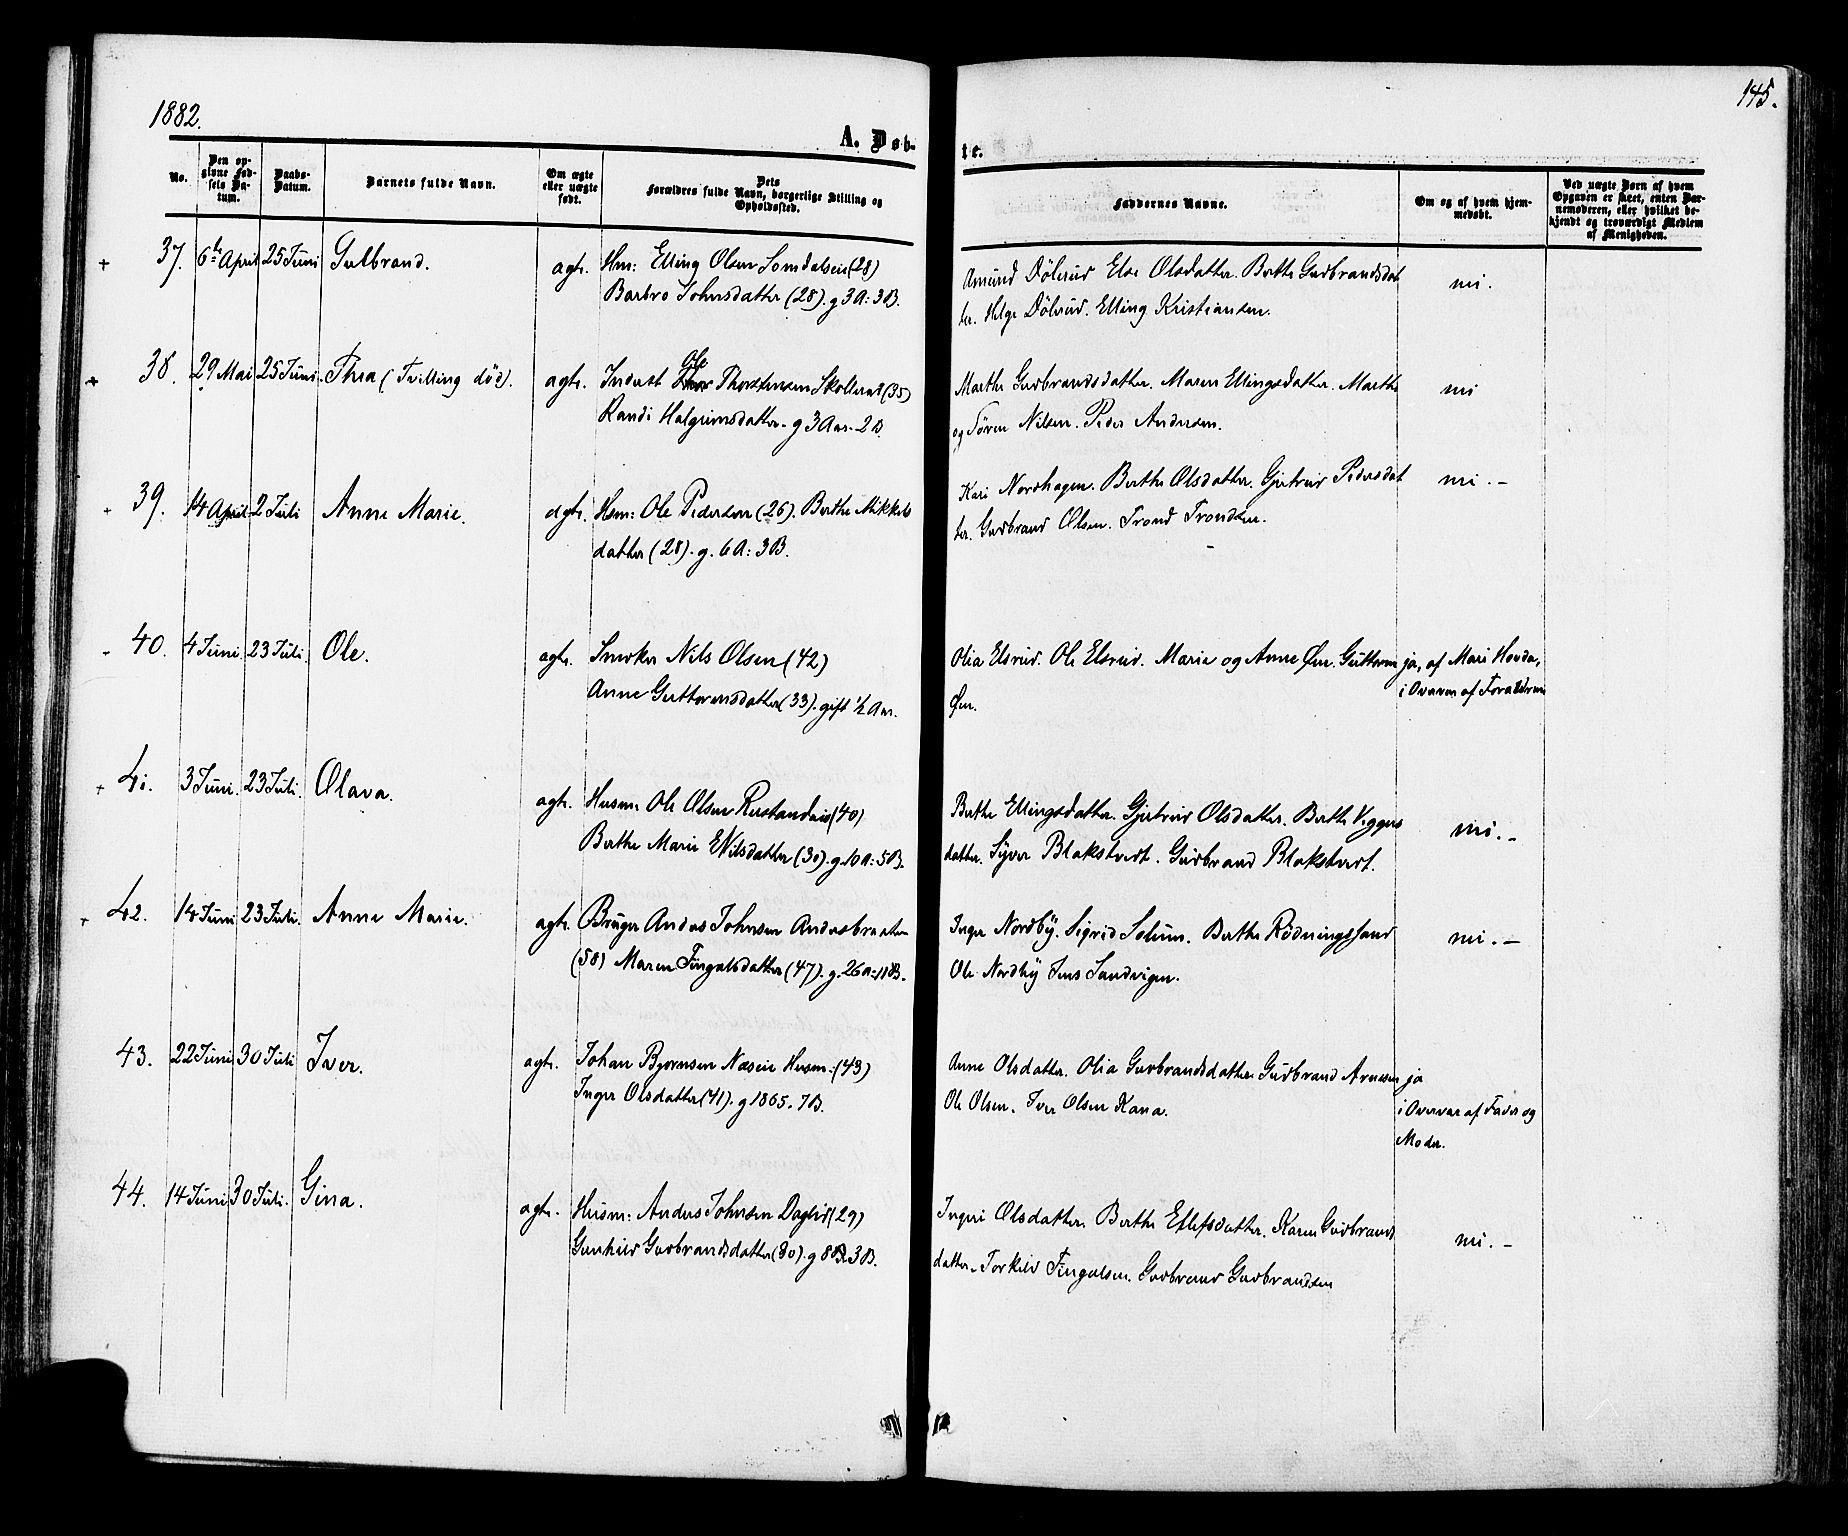 1882.
145.
A. Døb-
te.
No.
Den op-
givne Fød-
sels Da-
tum.
Daabs-
Datum.
Barnets fulde Navn.
Om ægte
eller uægte
født.
Dets
Forældres fulde Navn, borgerlige Stilling og
Opholdssted.
Faddernes Navne.
Om og af hvem hjem-
medøbt.
Ved uægte Børn af hvem
Opgaven er skeet, enten Bar-
nemoderen, eller hvilket be-
kjendt og troværdigt Medlem
af Menigheden.
37. 6te April 25 Juni Gulbrand. ægte. Hm: Elling Olsen Somdalseie (28)
Barbro Johnsdatter (28). g 3A: 3B.
Amund Dölerud Else Olsdatter. Berthe Gudbrandsdat
ter. Helge Dölerud. Elling Kristiansen.
nei.
38. 29 Mai 25 Juni. Thea (Tvilling død). ægte. Inderst Ole Thorstensen Skollerud (35)
Randi Halgrimsdatter. g 3 Aar. 2 B.
Marthe Gudbrandsdatter. Maren Ellingsdatter. Marthe
og Sören Nilsen. Peder Andersen.
nei
39. 14 April 2 Juli Anne Marie. ægte. Hsm: Ole Pedersen (26). Berthe Mikkels
datter (28). g. 6A: 3B.
Kari Nordhagen. Berthe Olsdatter. Gjertrud Pedersdat
ter. Gudbrand Olsen. Trond Trondsen.
nei. -
40. 4 Juni. 23 Juli. Ole. ægte. Smeker Nils Olsen (42)
Anne Guttormsdatter (33). gift 1/2 Aar.
Olia Elsrud. Ole Elsrud. Marie og Anne Øen. Guttorm
Øen.
ja, af Mari Hovda,
i Overvær af Forældrene
41. 3 Juni. 23 Juli. Olava. ægte. Husm: Ole Olsen Rustandeie (40)
Berthe Marie ENilsdatter (30). g. 10A: 5B.
Berthe Ellingsdatter. Gjertrud Olsdatter. Berthe Viggers
datter. Syver Blakstvedt. Gudbrand Blakstvedt.
nei. -
42. 14 Juni 23 Juli. Anne Marie. ægte. Bruger Anders Johnsen Andersbraaten
(58) Maren Fingalsdatter (47). g. 26A: 11B.
Inger Nordby. Sigrid Solum. Berthe Rödningssand
Ole Nordby Jens Sandvigen.
nei. -
43. 22 Juni. 30 Juli Iver. ægte. Johan Bjørnsen Næseie Husm. (43)
Inger Olsdatter (41). g 1865. 7B.
Anne Olsdatter. Olia Gudbrandsdatter. Gudbrand Arnesen
Ole Olsen. Iver Olsen Rana.
ja
i Overvær af Fader og
Moder.
44. 14 Juni 30 Juli. Gina. ægte. Husm: Anders Johnsen Daglid (29)
Gunhild Gudbrandsdatter (30). g 8A. 3B.
Ingeri Olsdatter. Berthe Ellefsdatter. Karen Gudbrands
datter. Torkild Fingalsen. Gudbrand Gudbrandsen
nei. -